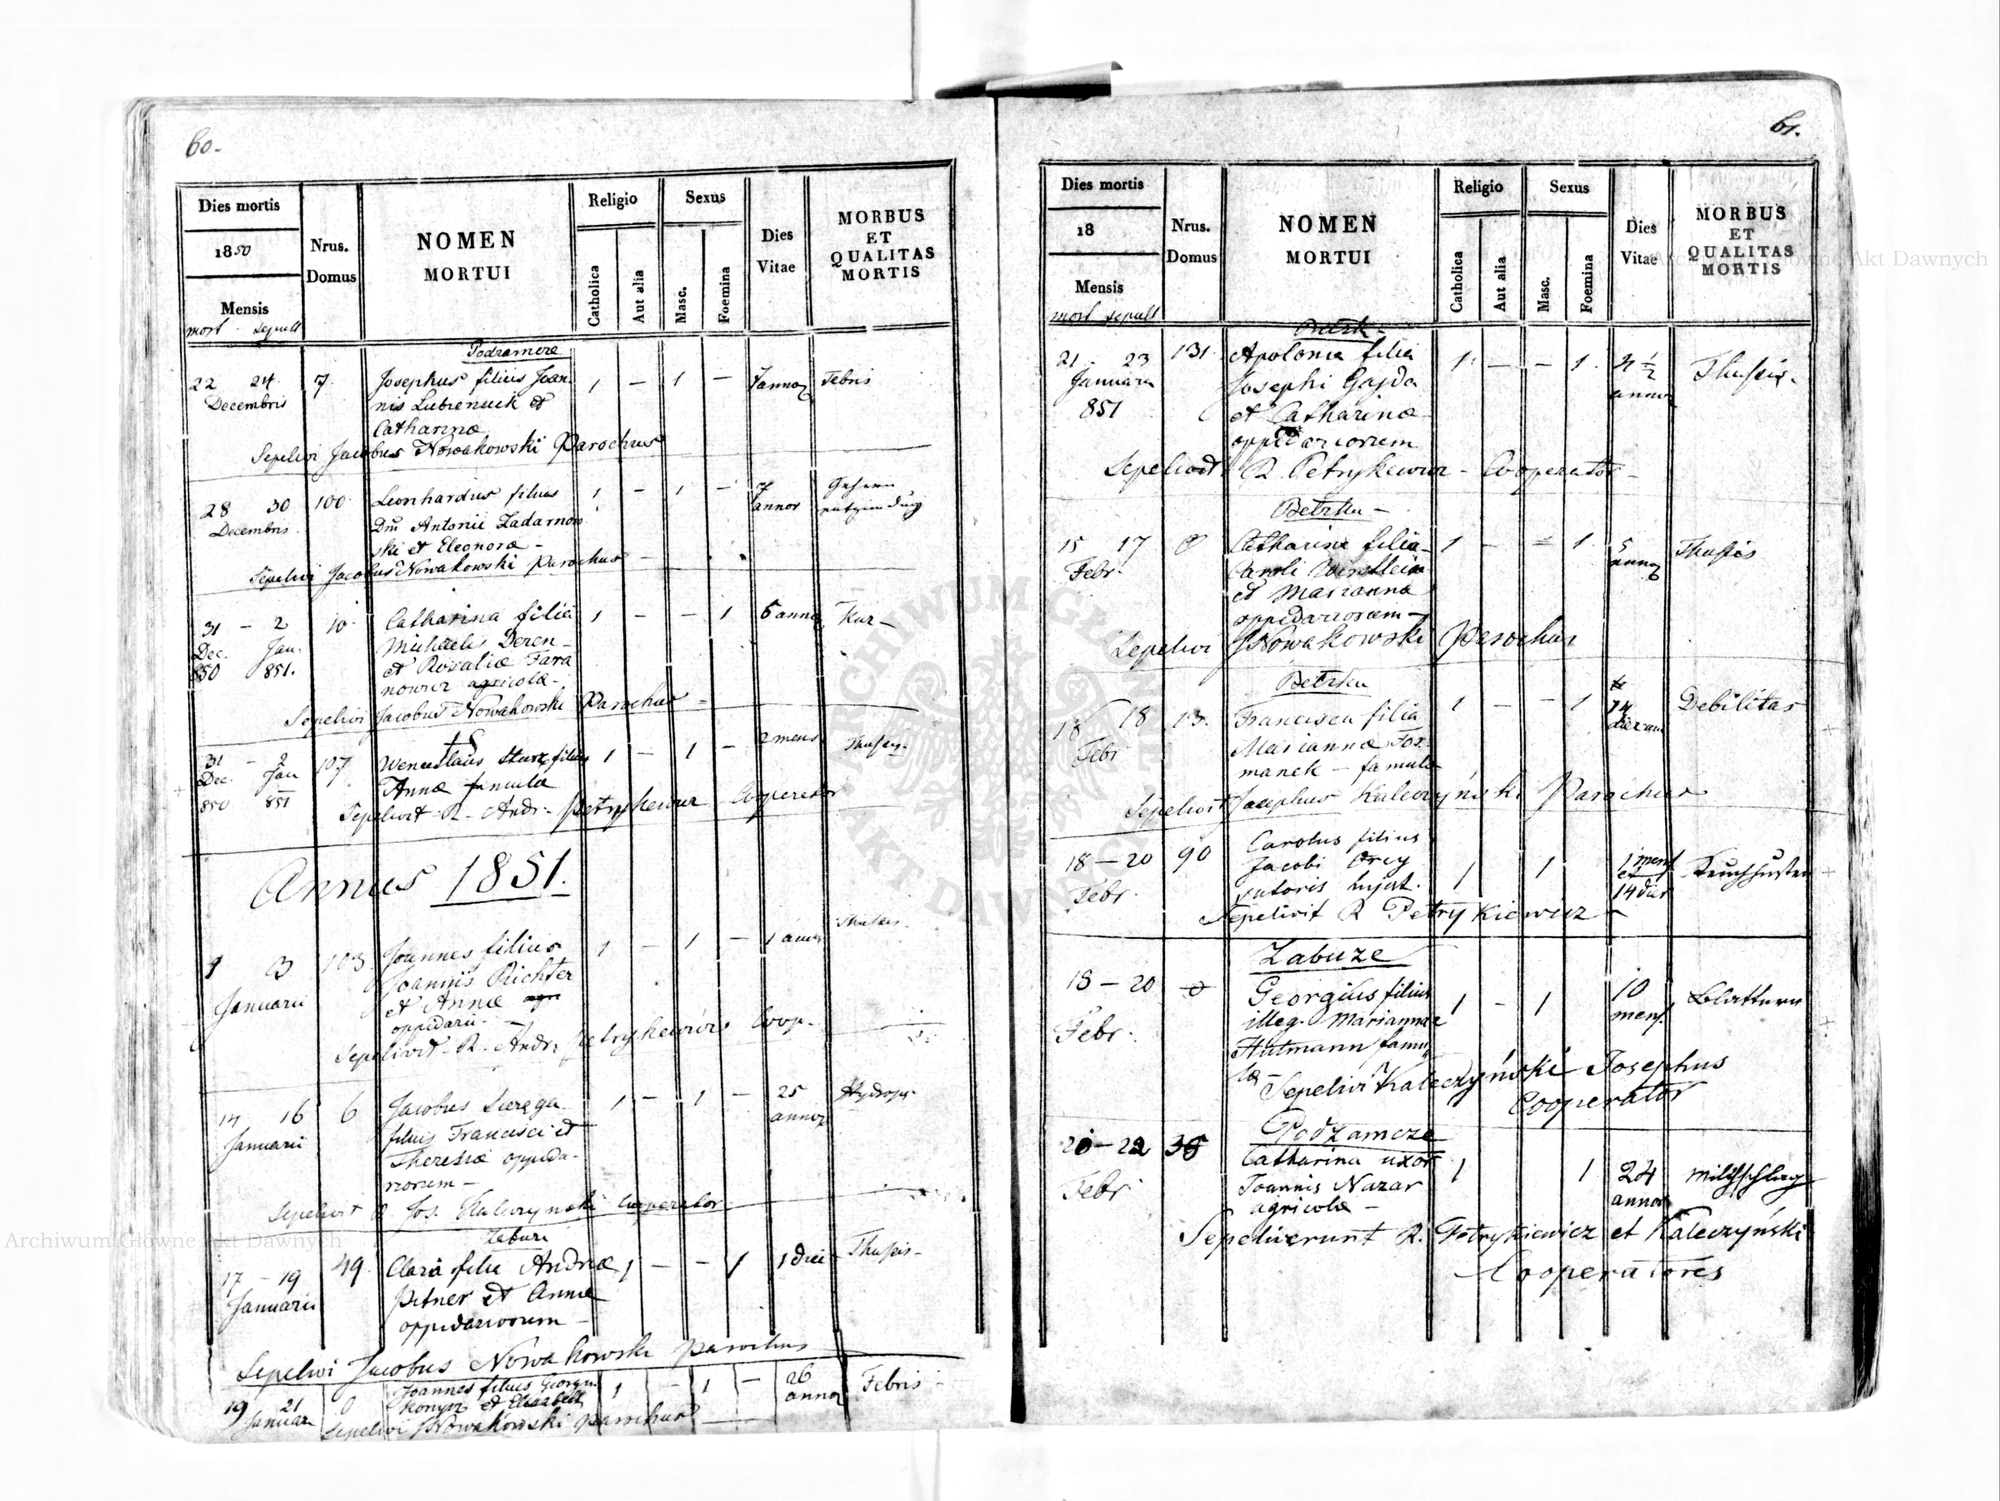 60.
Dies mortis
1850
Mensis
mort. sepult
Nrus. Domus
NOMEN MORTUI
Religio
Catholica
Aut alia
Sexus
Masc.
Foemina
Dies Vitae
MORBUS ET QUALITAS MORTIS
Podzamcze
22 24 7 Josephus filius Joan- 1 — 1 — 7 annor Febris
Decembris nis
Catharinæ
Sepelivi Jacobus Nowakowski Parochus
28 30 100 Leonhardus filius 1 — 1 — 7 annor
Decembris Dni Antonii Zadarnow
ski et Eleonoræ —
Sepelivi Jacobus Nowakowski Parochus —
31 — 2 10 Catharina filia 1 — — 1 6 annor
Dec. Jan. Michaelis Deren —
850 851. et Rosaliæ Fara
nowicz agricolæ —
Sepelivi Jacobus Nowakowski Parochus —
31 — 2 107 Wenceslaus Sturz filius 1 — 1 — 2 mens Thusis
Dec. Jan Annæ famula
850 851 Sepelivit R. Andr. Petrykiewicz Cooperator
Annus 1851.
1 3 103 Joannes filius 1 — 1 — 1 anni Thusis
Januarii Joannis Richter
et Annæ
oppidarii —
Sepelivit R. Andr. Petrykiewicz Coop.
14 16 6 Jacobus 1 — 1 — 25 annor Hydrops
Januarii filius Francisci et
Theresiæ oppida-
riorum —
Sepelivit R. Jos. Kaleczynski Cooperator
17 — 19 49 Clara filia Andreæ 1 — — 1 1 diei Thusis
Januarii Pitner et Annæ
oppidariorum —
Sepelivi Jacobus Nowakowski Parochus
19 21 0 Joannes filius Georgii 1 — 1 — 26 annor Febris —
Januar et Elisabeth
Sepelivi Nowakowski Parochus
61.
Dies mortis
18
Mensis
mort sepult
Nrus. Domus
NOMEN MORTUI
Religio
Catholica
Aut alia
Sexus
Masc.
Foemina
Dies Vitae
MORBUS ET QUALITAS MORTIS
21. 23 131. Apolonia filia 1. — — 1. 4 1/2 Thusis.
Januarii Josephi Gajda annor
851 et Catharinæ
oppidariorum
Sepelivit R. Petrykiewicz — Cooperator —
Bełzku —
15 17 0 Catharina filia 1 — — 1. 5 annor Thusis
Febr. Caroli
et Mariannæ
oppidariorum —
Sepelivi Nowakowski Parochus
Bełzku
18 13. Francisca filia 1 — — 1 14 Debilitas
Febr Mariannæ For- dierum
manek — famula
Sepelivit Josephus Kaleczyński Parochus
18 — 20 90 Carolus filius 1 1 1 mens Keuchhusten
Febr. Jacobi Orcy et
sutoris hujat. 14 dier
Sepelivit R Petrykiewicz —
Zabuze
18 — 20 0 Georgius filius 1 — 1 10 Blattern
Febr. illeg. Mariannæ mens.
Hutmann famu
læ — Sepelivi Kaleczyński Josephus
Cooperator
Podzamcze
20 — 22 36 Catharina uxor 1 1 24 Milchschlag
Febr Joannis Nazar annor
agricolæ —
Sepelierunt R. Petrykiewicz et Kaleczyński
Cooperatores
Archiwum Główne Akt Dawnych
ARCHIWUM GŁÓWNE AKT DAWNYCH